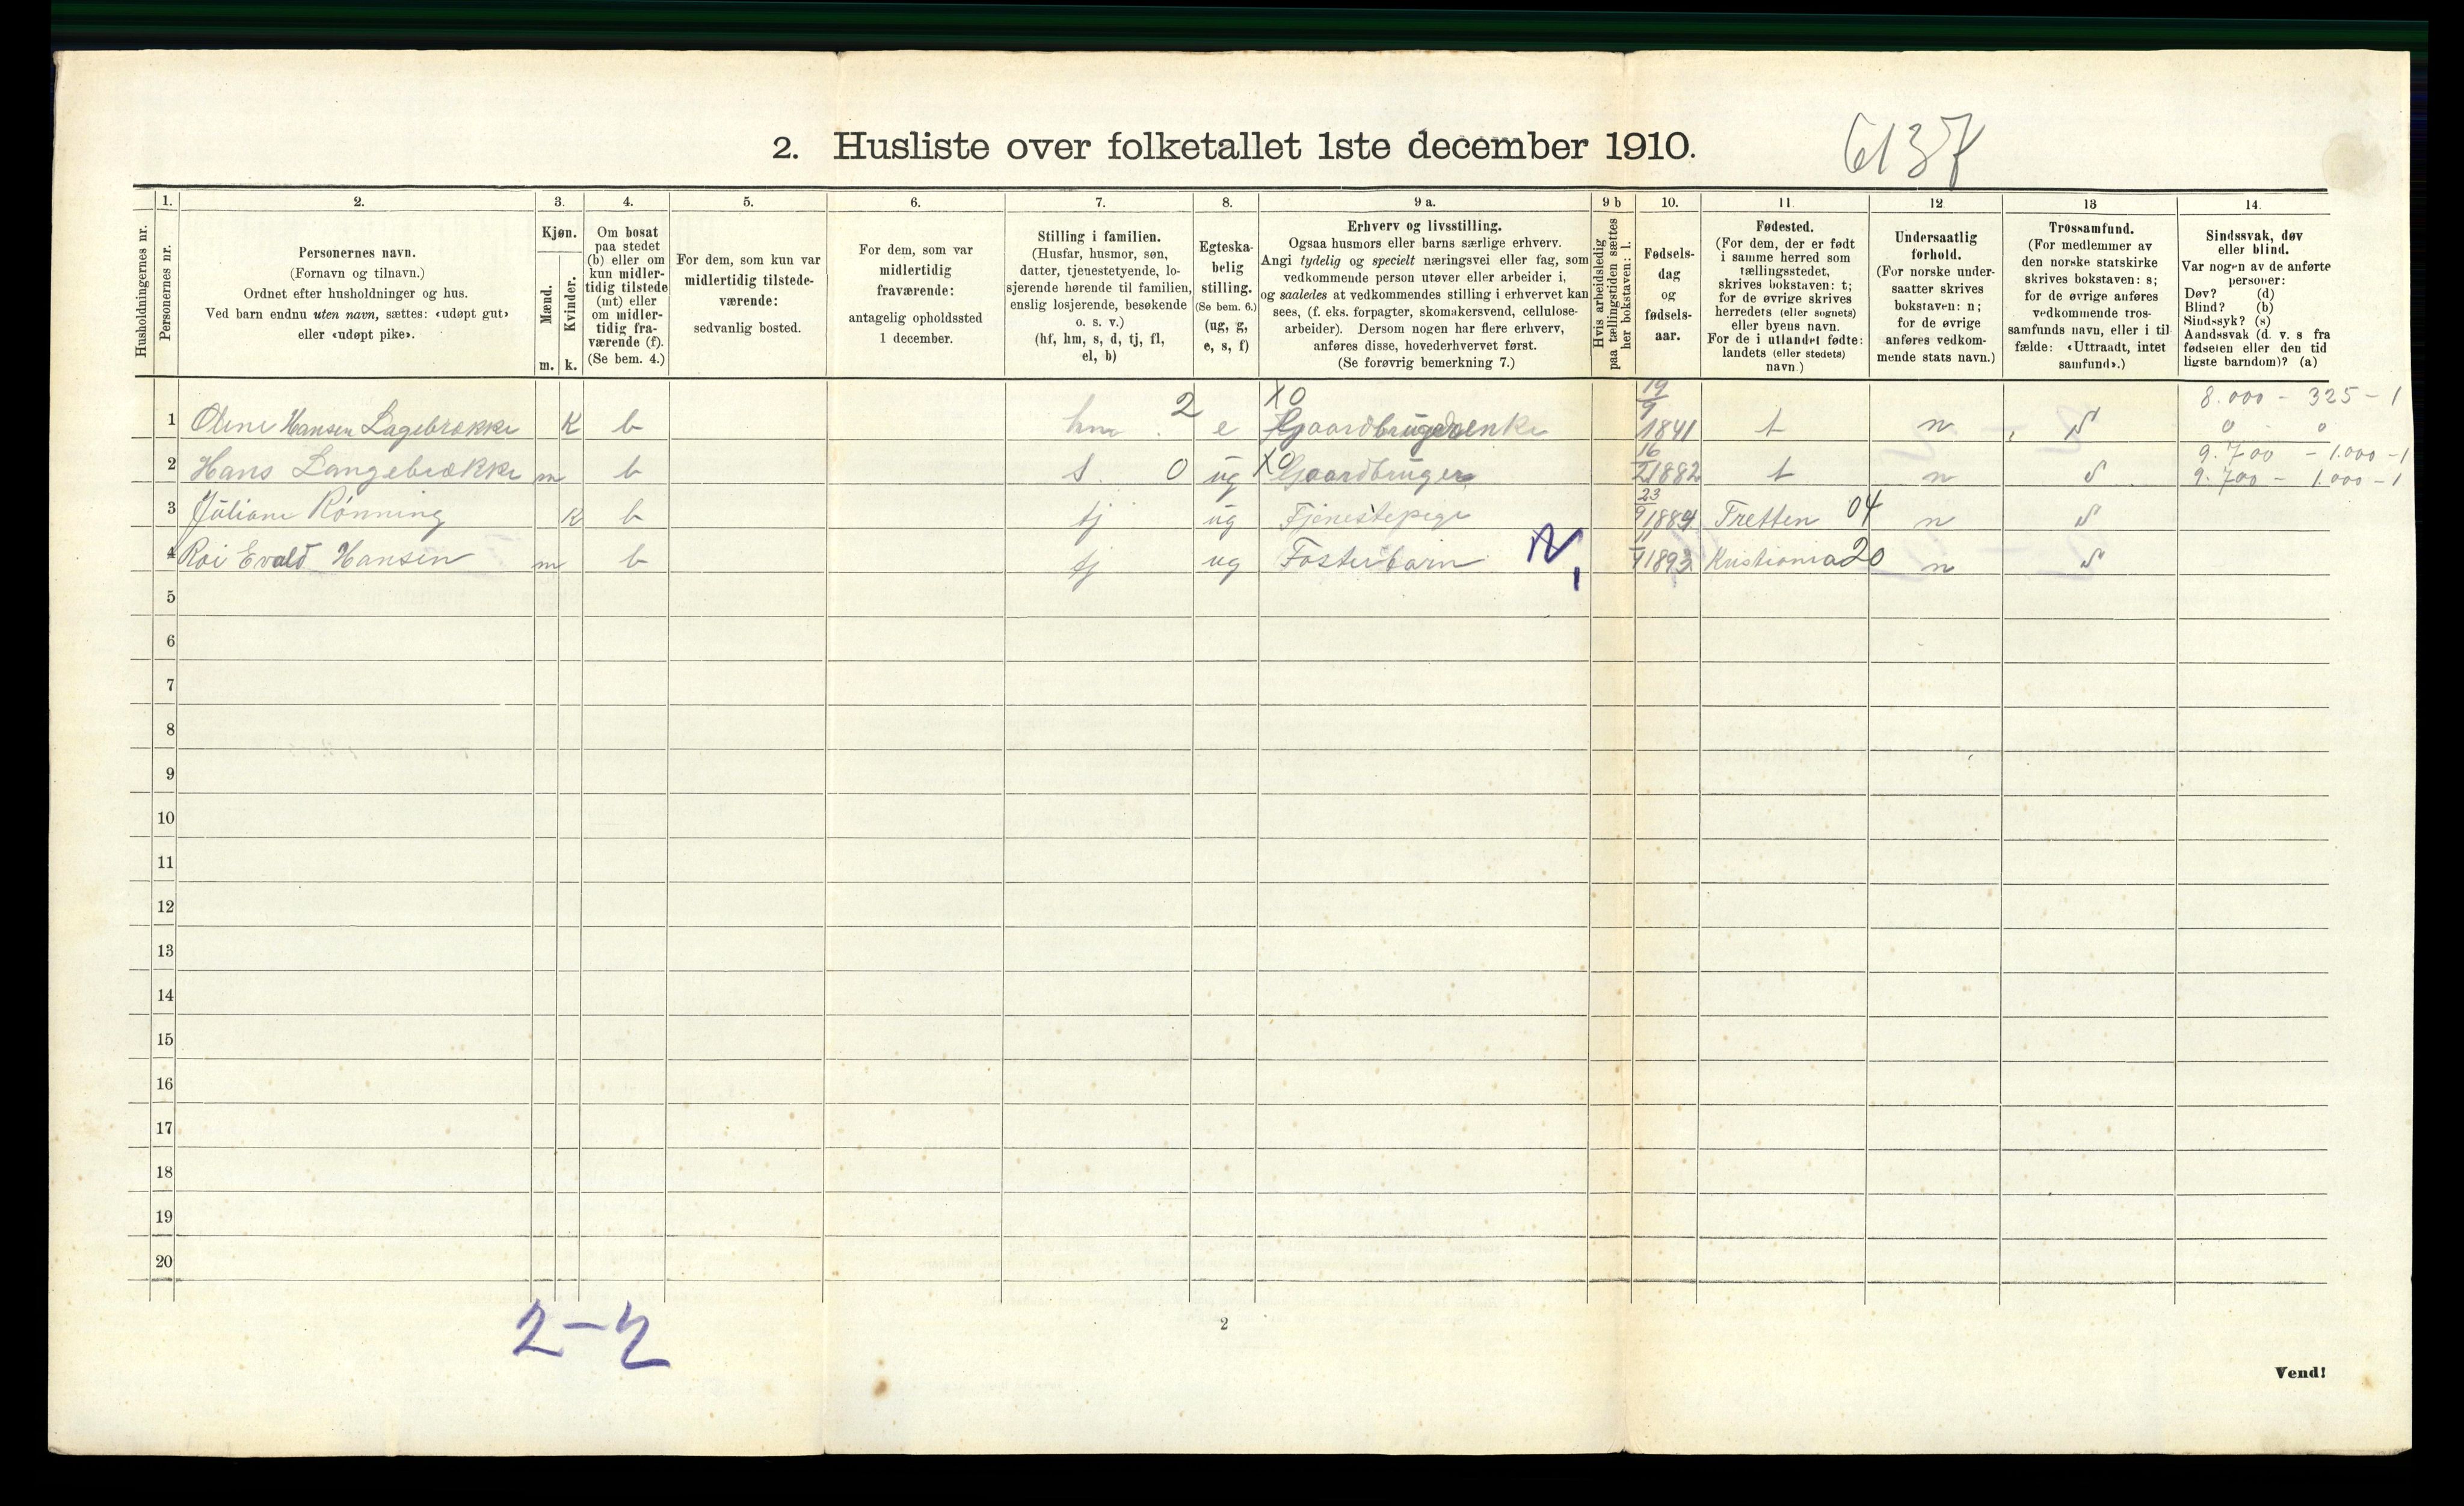 2. Husliste over folketallet 1ste december 1910.
6137
Husholdningernes nr.
1.
Personernes nr.
2.
Personernes navn.
(Fornavn og tilnavn.)
Ordnet efter husholdninger og hus.
Ved barn endnu uten navn, sættes: «udøpt gut»
eller «udøpt pike».
3.
Kjøn.
Mænd.
Kvinder.
m. k.
4.
Om bosat
paa stedet
(b) eller om
kun midler-
tidig tilstede
(mt) eller
om midler-
tidig fra-
værende (f).
(Se bem. 4.)
5.
For dem, som kun var
midlertidig tilstede-
værende:
sedvanlig bosted.
6.
For dem, som var
midlertidig
fraværende:
antagelig opholdssted
1 december.
7.
Stilling i familien.
(Husfar, husmor, søn,
datter, tjenestetyende, lo-
sjerende hørende til familien,
enslig losjerende, besøkende
o. s. v.)
(hf, hm, s, d, tj, fl,
el, b)
8.
Egteska-
belig
stilling.
(Se bem. 6.)
(ug, g,
e, s, f)
9 a.
Erhverv og livsstilling.
Ogsaa husmors eller barns særlige erhverv.
Angi tydelig og specielt næringsvei eller fag, som
vedkommende person utøver eller arbeider i,
og saaledes at vedkommendes stilling i erhvervet kan
sees, (f. eks. forpagter, skomakersvend, cellulose-
arbeider). Dersom nogen har flere erhverv,
anføres disse, hovederhvervet først.
(Se forøvrig bemerkning 7.)
9 b
Hvis arbeidsledig
paa tællingstiden sættes
her bokstaven: l.
10.
Fødsels-
dag
og
fødsels-
aar.
11.
Fødested.
(For dem, der er født
i samme herred som
tællingsstedet,
skrives bokstaven: t;
for de øvrige skrives
herredets (eller sognets)
eller byens navn.
For de i utlandet fødte:
landets (eller stedets)
navn.)
12
Undersaatlig
forhold.
(For norske under-
saatter skrives
bokstaven: n;
for de øvrige
anføres vedkom-
mende stats navn.)
13
Trossamfund.
(For medlemmer av
den norske statskirke
skrives bokstaven: s;
for de øvrige anføres
vedkommende tros-
samfunds navn, eller i til
fælde: «Uttraadt, intet
samfund».)
14.
Sindssvak, døv
eller blind.
Var nogen av de anførte
personer:
Døv? (d)
Blind? (b)
Sindssyk? (s)
Aandssvak (d. v. s fra
fødselen eller den tid
ligste barndom)? (a)
1 Oline Hansen Lagebrække K b hm 2 e X0 Gaardbrugerenke 19/9 1841 t n s 8.000 - 325 - 1
0 - 0
2 Hans Langebrække m b s. 0 ug X0 Gaardbruger 16/2 1882 t n s 9.700 - 1.000 - 1
9.700 - 1.000 - 1
3 Juliane Rønning K b tj ug Tjenestepige 23/9 1889 Tretten 04 n s
4 Roi Evald Hansen m b tj ug Fosterbarn 1893 Kristiania 20 n s
5
6
7
8
9
10
11
12
13
14
15
16
17
18
19
20
2-2
2
Vend!